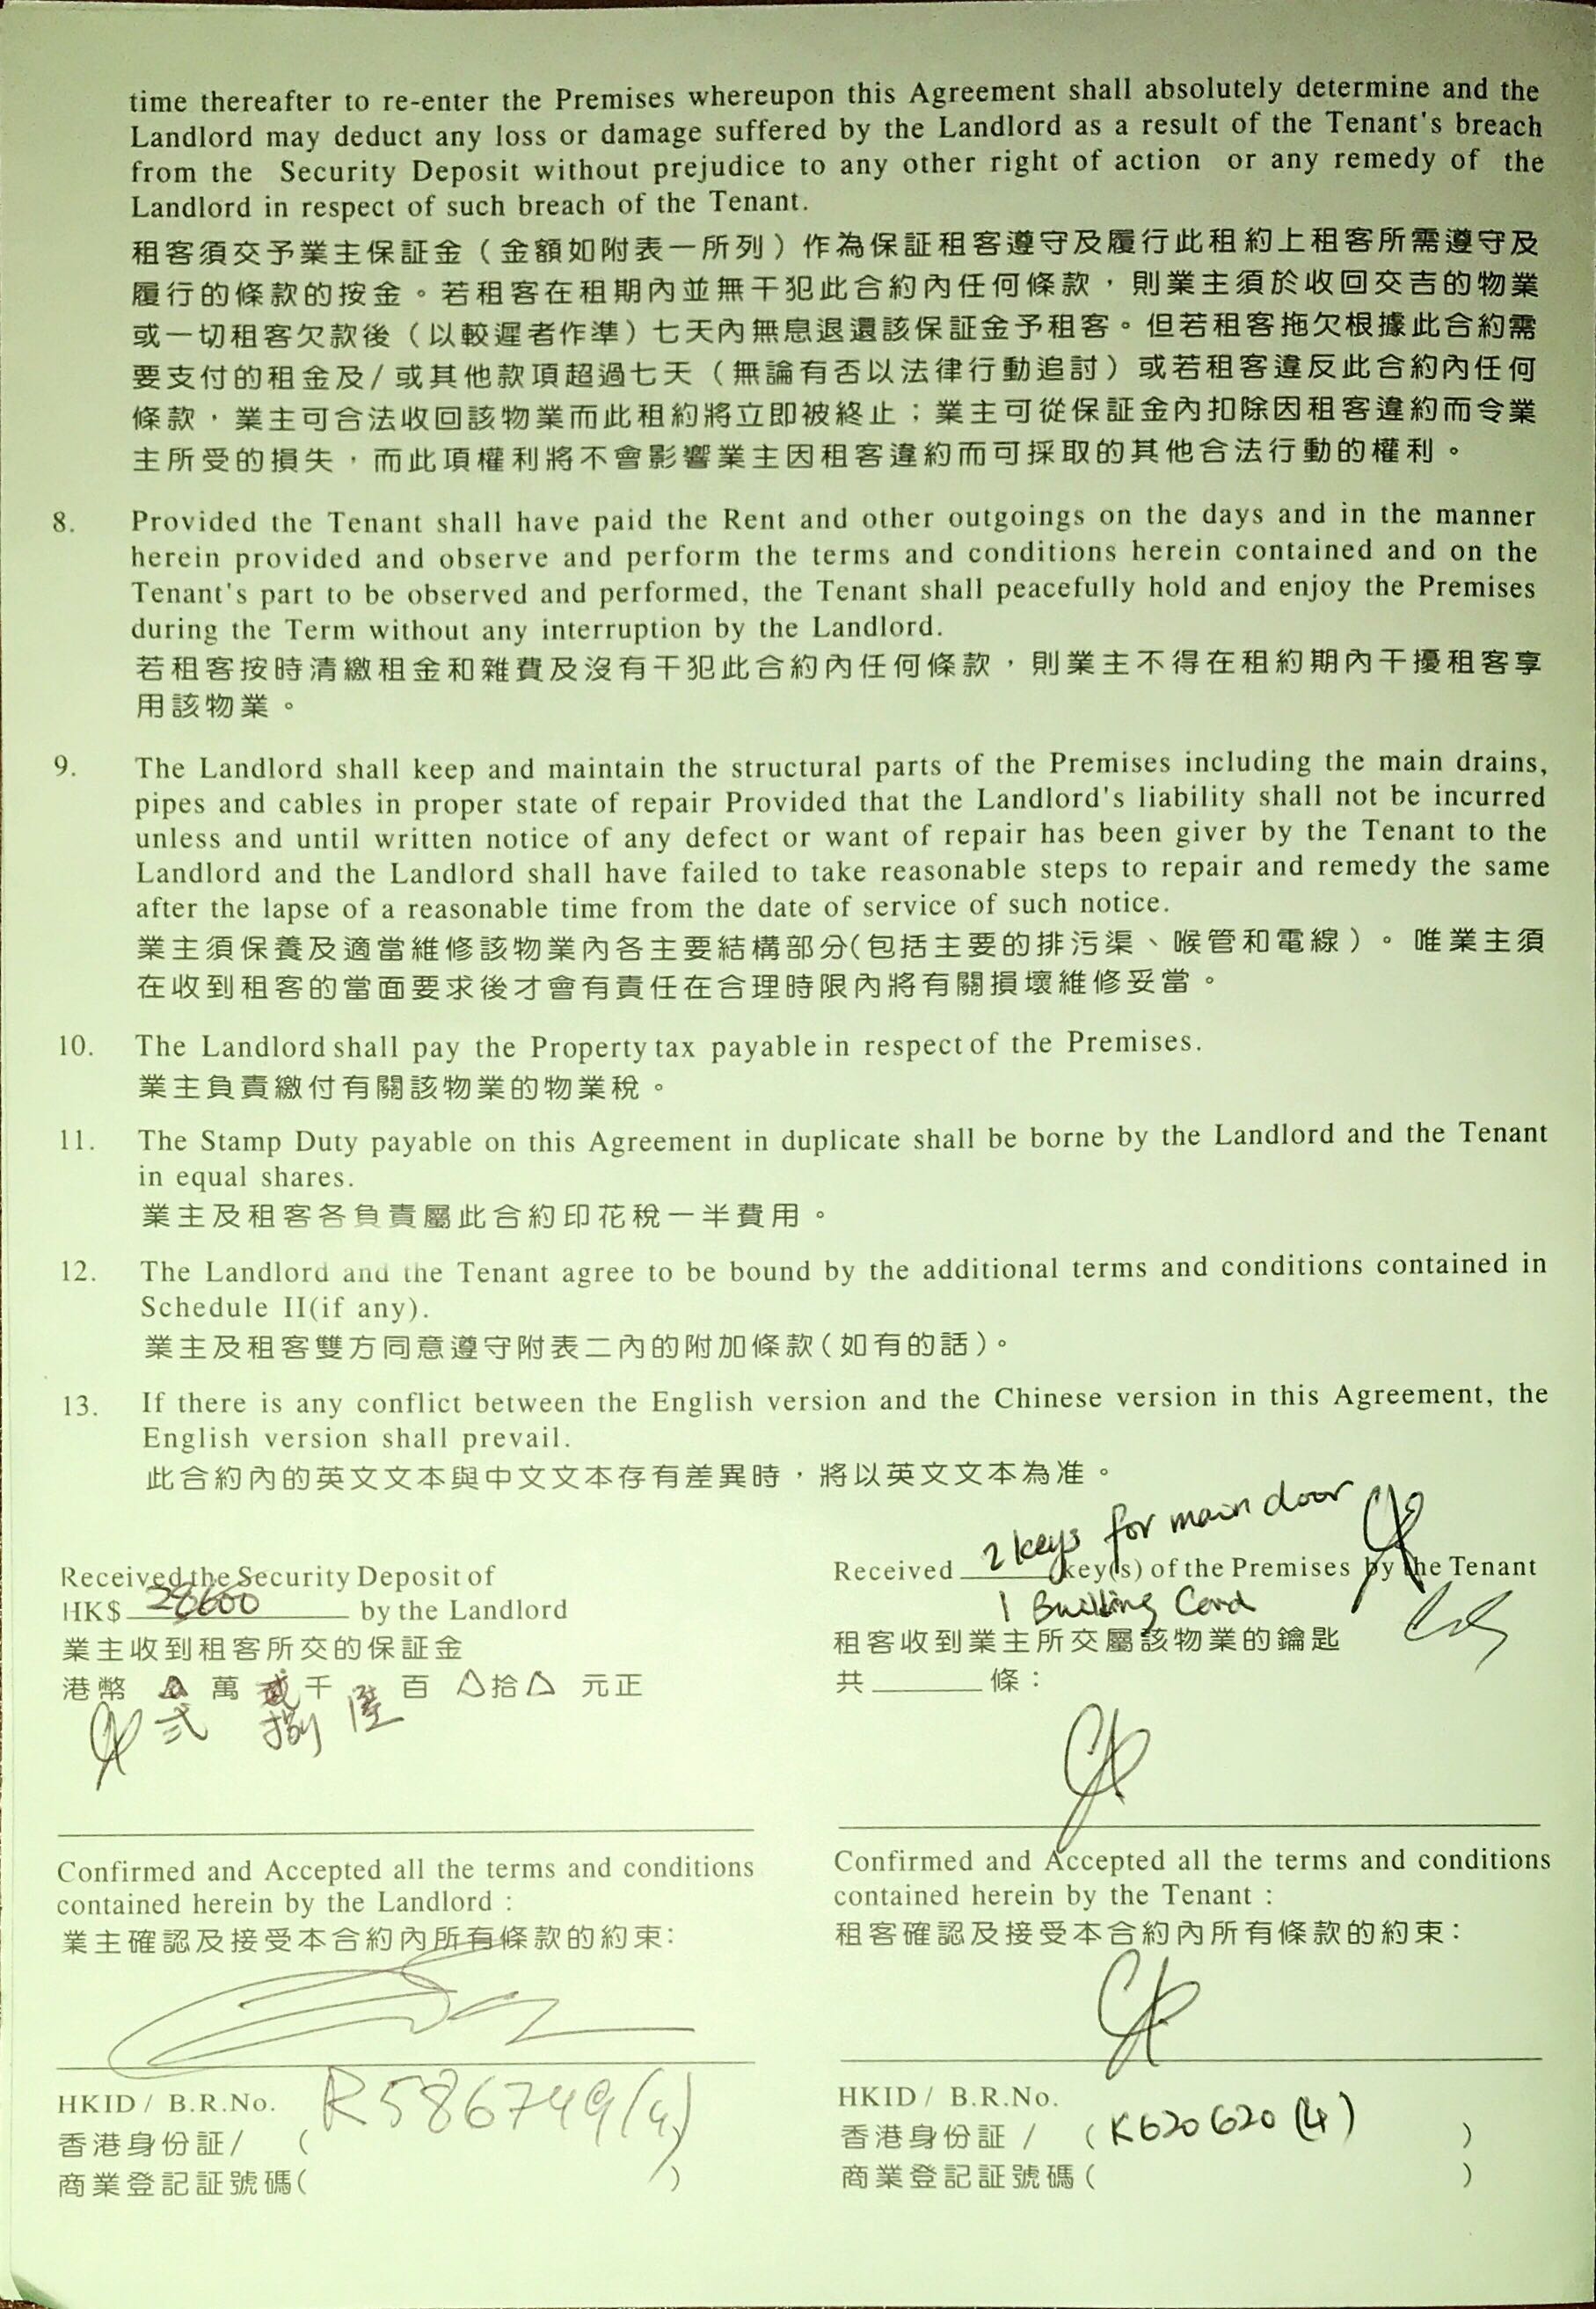 time thereafter to re-enter the Premises whereupon this Agreement shall absolutely determine and the
Landlord may deduct any loss or damage suffered by the Landlord as a result of the Tenant's breach
from the Security Deposit without prejudice to any other right of action or any remedy of the
Landlord in respect of such breach of the Tenant.
租客須交予業主保証金（金額如附表一所列）作為保証租客遵守及履行此租約上租客所需遵守及
履行的條款的按金。若租客在租期內並無干犯此合約內任何條款，則業主須於收回交吉的物業
或一切租客欠款後（以較遲者作準）七天內無息退還該保証金予租客。但若租客拖欠根據此合約需
要支付的租金及/或其他款項超過七天（無論有否以法律行動追討）或若租客違反此合約內任何
條款，業主可合法收回該物業而此租約將立即被終止；業主可從保証金內扣除因租客違約而令業
主所受的損失，而此項權利將不會影響業主因租客違約而可採取的其他合法行動的權利。
8. Provided the Tenant shall have paid the Rent and other outgoings on the days and in the manner
herein provided and observe and perform the terms and conditions herein contained and on the
Tenant's part to be observed and performed, the Tenant shall peacefully hold and enjoy the Premises
during the Term without any interruption by the Landlord.
若租客按時清繳租金和雜費及沒有干犯此合約內任何條款，則業主不得在租約期內干擾租客享
用該物業。
9. The Landlord shall keep and maintain the structural parts of the Premises including the main drains,
pipes and cables in proper state of repair Provided that the Landlord's liability shall not be incurred
unless and until written notice of any defect or want of repair has been giver by the Tenant to the
Landlord and the Landlord shall have failed to take reasonable steps to repair and remedy the same
after the lapse of a reasonable time from the date of service of such notice.
業主須保養及適當維修該物業內各主要結構部分(包括主要的排污渠、喉管和電線)。唯業主須
在收到租客的當面要求後才會有責任在合理時限內將有關損壞維修妥當。
10. The Landlord shall pay the Property tax payable in respect of the Premises.
業主負責繳付有關該物業的物業稅。
11. The Stamp Duty payable on this Agreement in duplicate shall be borne by the Landlord and the Tenant
in equal shares.
業主及租客各負責屬此合約印花稅一半費用。
12. The Landlord and the Tenant agree to be bound by the additional terms and conditions contained in
Schedule II(if any).
業主及租客雙方同意遵守附表二內的附加條款(如有的話)。
13. If there is any conflict between the English version and the Chinese version in this Agreement, the
English version shall prevail.
此合約內的英文文本與中文文本存有差異時，將以英文文本為准。
Received the Security Deposit of
HK$ 28600 by the Landlord
業主收到租客所交的保証金
港幣 萬 千 百 拾 元正
弍 捌 陸
2 keys for main door
Received key(s) of the Premises by the Tenant
1 Building Card
租客收到業主所交屬該物業的鑰匙
共 條：
Confirmed and Accepted all the terms and conditions
contained herein by the Landlord :
業主確認及接受本合約內所有條款的約束:
HKID / B.R.No. R586749(4)
香港身份証/ (
商業登記証號碼( )
Confirmed and Accepted all the terms and conditions
contained herein by the Tenant :
租客確認及接受本合約內所有條款的約束:
HKID / B.R.No.
香港身份証 / ( K620620(4) )
商業登記証號碼( )